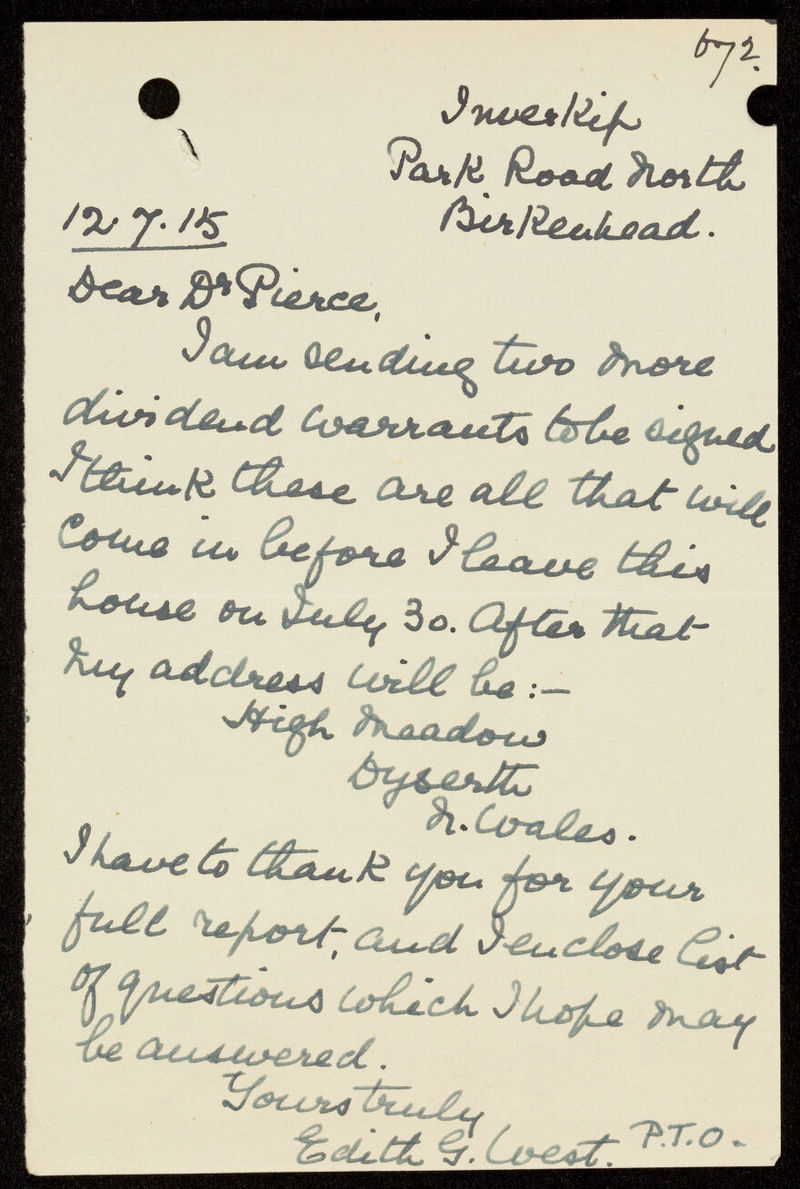 672.
Inverkip
Park Road North
Birkenhead.
12.7.15
Dear Dr Pierce,
I am sending two more
dividend warrants to be signed
I think these are all that will
come in before I leave this
house on July 30. After that
my address will be:—
High Meadow
Dyserth
N. Wales.
I have to thank you for your
full report, and I enclose list
of questions which I hope may
be answered.
Yours truly
Edith G. West.
P.T.O.